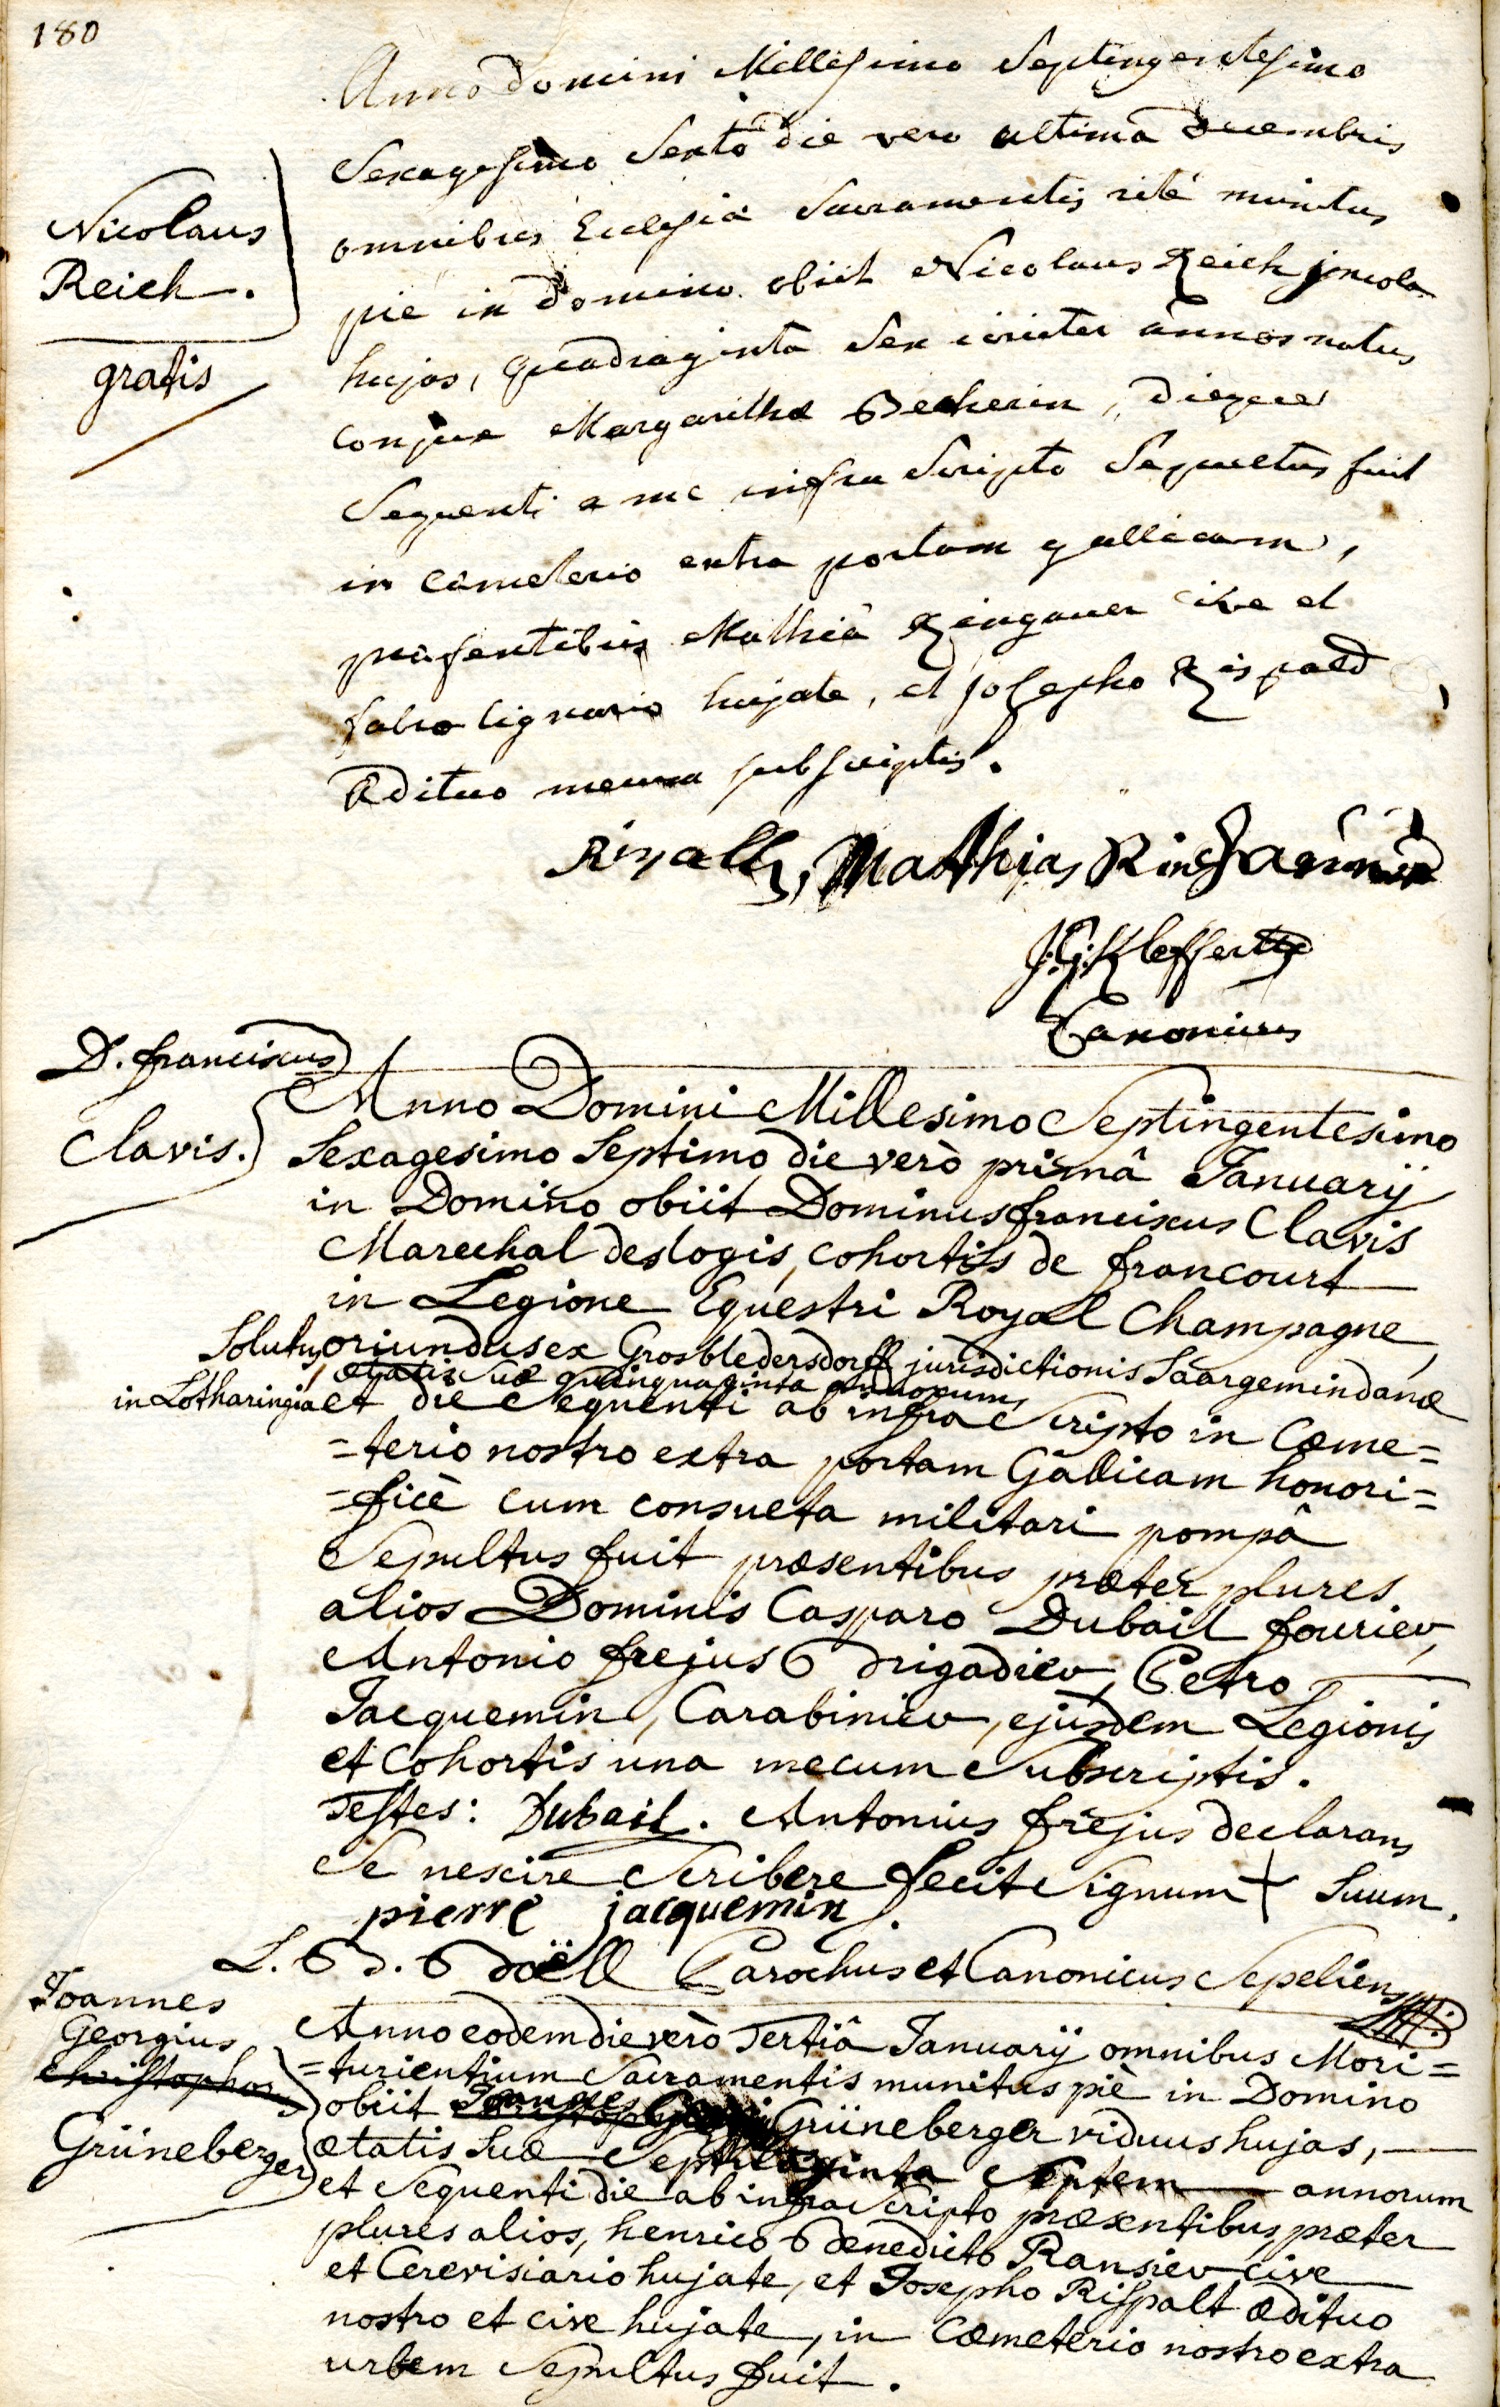 180
Anno Domini Millesimo Septingentesimo
Sexagesimo Sexto die vero ultima Decembris
omnibus Ecclesiæ Sacramentis rite munitus
pie in Domino obiit Nicolaus Reich jncola
hujas, quadraginta Sex circiter annos natus
conjux Margaritha Beckerin, dieque
Sequenti a me infra Scripto Sepultus fuit
in cemeterio extra portam gallicam,
præsentibus Mathia Ringauer cive et
fabro lignario hujate, et josepho Rispald
Ædituo mecum subscriptis.
Nicolaus
Reich.
gratis
Rispallt, Matthias Ringauer
J.G. Kleffert
Canonicus
D. franciscus
Clavis.
Anno Domini Millesimo Septingentesimo
Sexagesimo Septimo die verò primâ Januarij
in Domino obiit Dominus franciscus Clavis
Marechal deslogis, cohortis de francourt
in Legione Equestri Royal Champagne,
Solutus, oriundus ex Grosbledersdorff jurisdictionis Saargemindanæ
in Lotharingia, ætatis suæ quinquaginta annorum,
et die Sequenti ab infra Scripto in Cœme=
=terio nostro extra portam Gallicam honori=
=ficè cum consueta militari pompâ
Sepultus fuit præsentibus præter plures
alios Dominis Casparo Dubail fourier,
Antonio frejus Brigadier, Petro
Jacquemin, Carabinier, ejusdem Legionis
et Cohortis una mecum Subscriptis.
Testes: Dubail. Antonius frejus declarans
Se nescire Scribere fecit Signum + Suum.
pierre jacquemin.
L. B. Doëll Parochus et Canonicus Sepeliens
Joannes
Georgius
Christophorus
Grüneberger
Anno eodem die verò Tertiâ Januarij omnibus Mori=
=turientium Sacramentis munitus piè in Domino
obiit Joannes Grüneberger viduus hujas,
ætatis Suæ Septuaginta Septem annorum
et Sequenti die ab infra Scripto præsentibus, præter
plures alios, henrico Benedicto Ransier cive
et Cerevisiario hujate, et Josepho Rispalt ædituo
nostro et cive hujate, in Cœmeterio nostro extra
urbem Sepultus fuit.